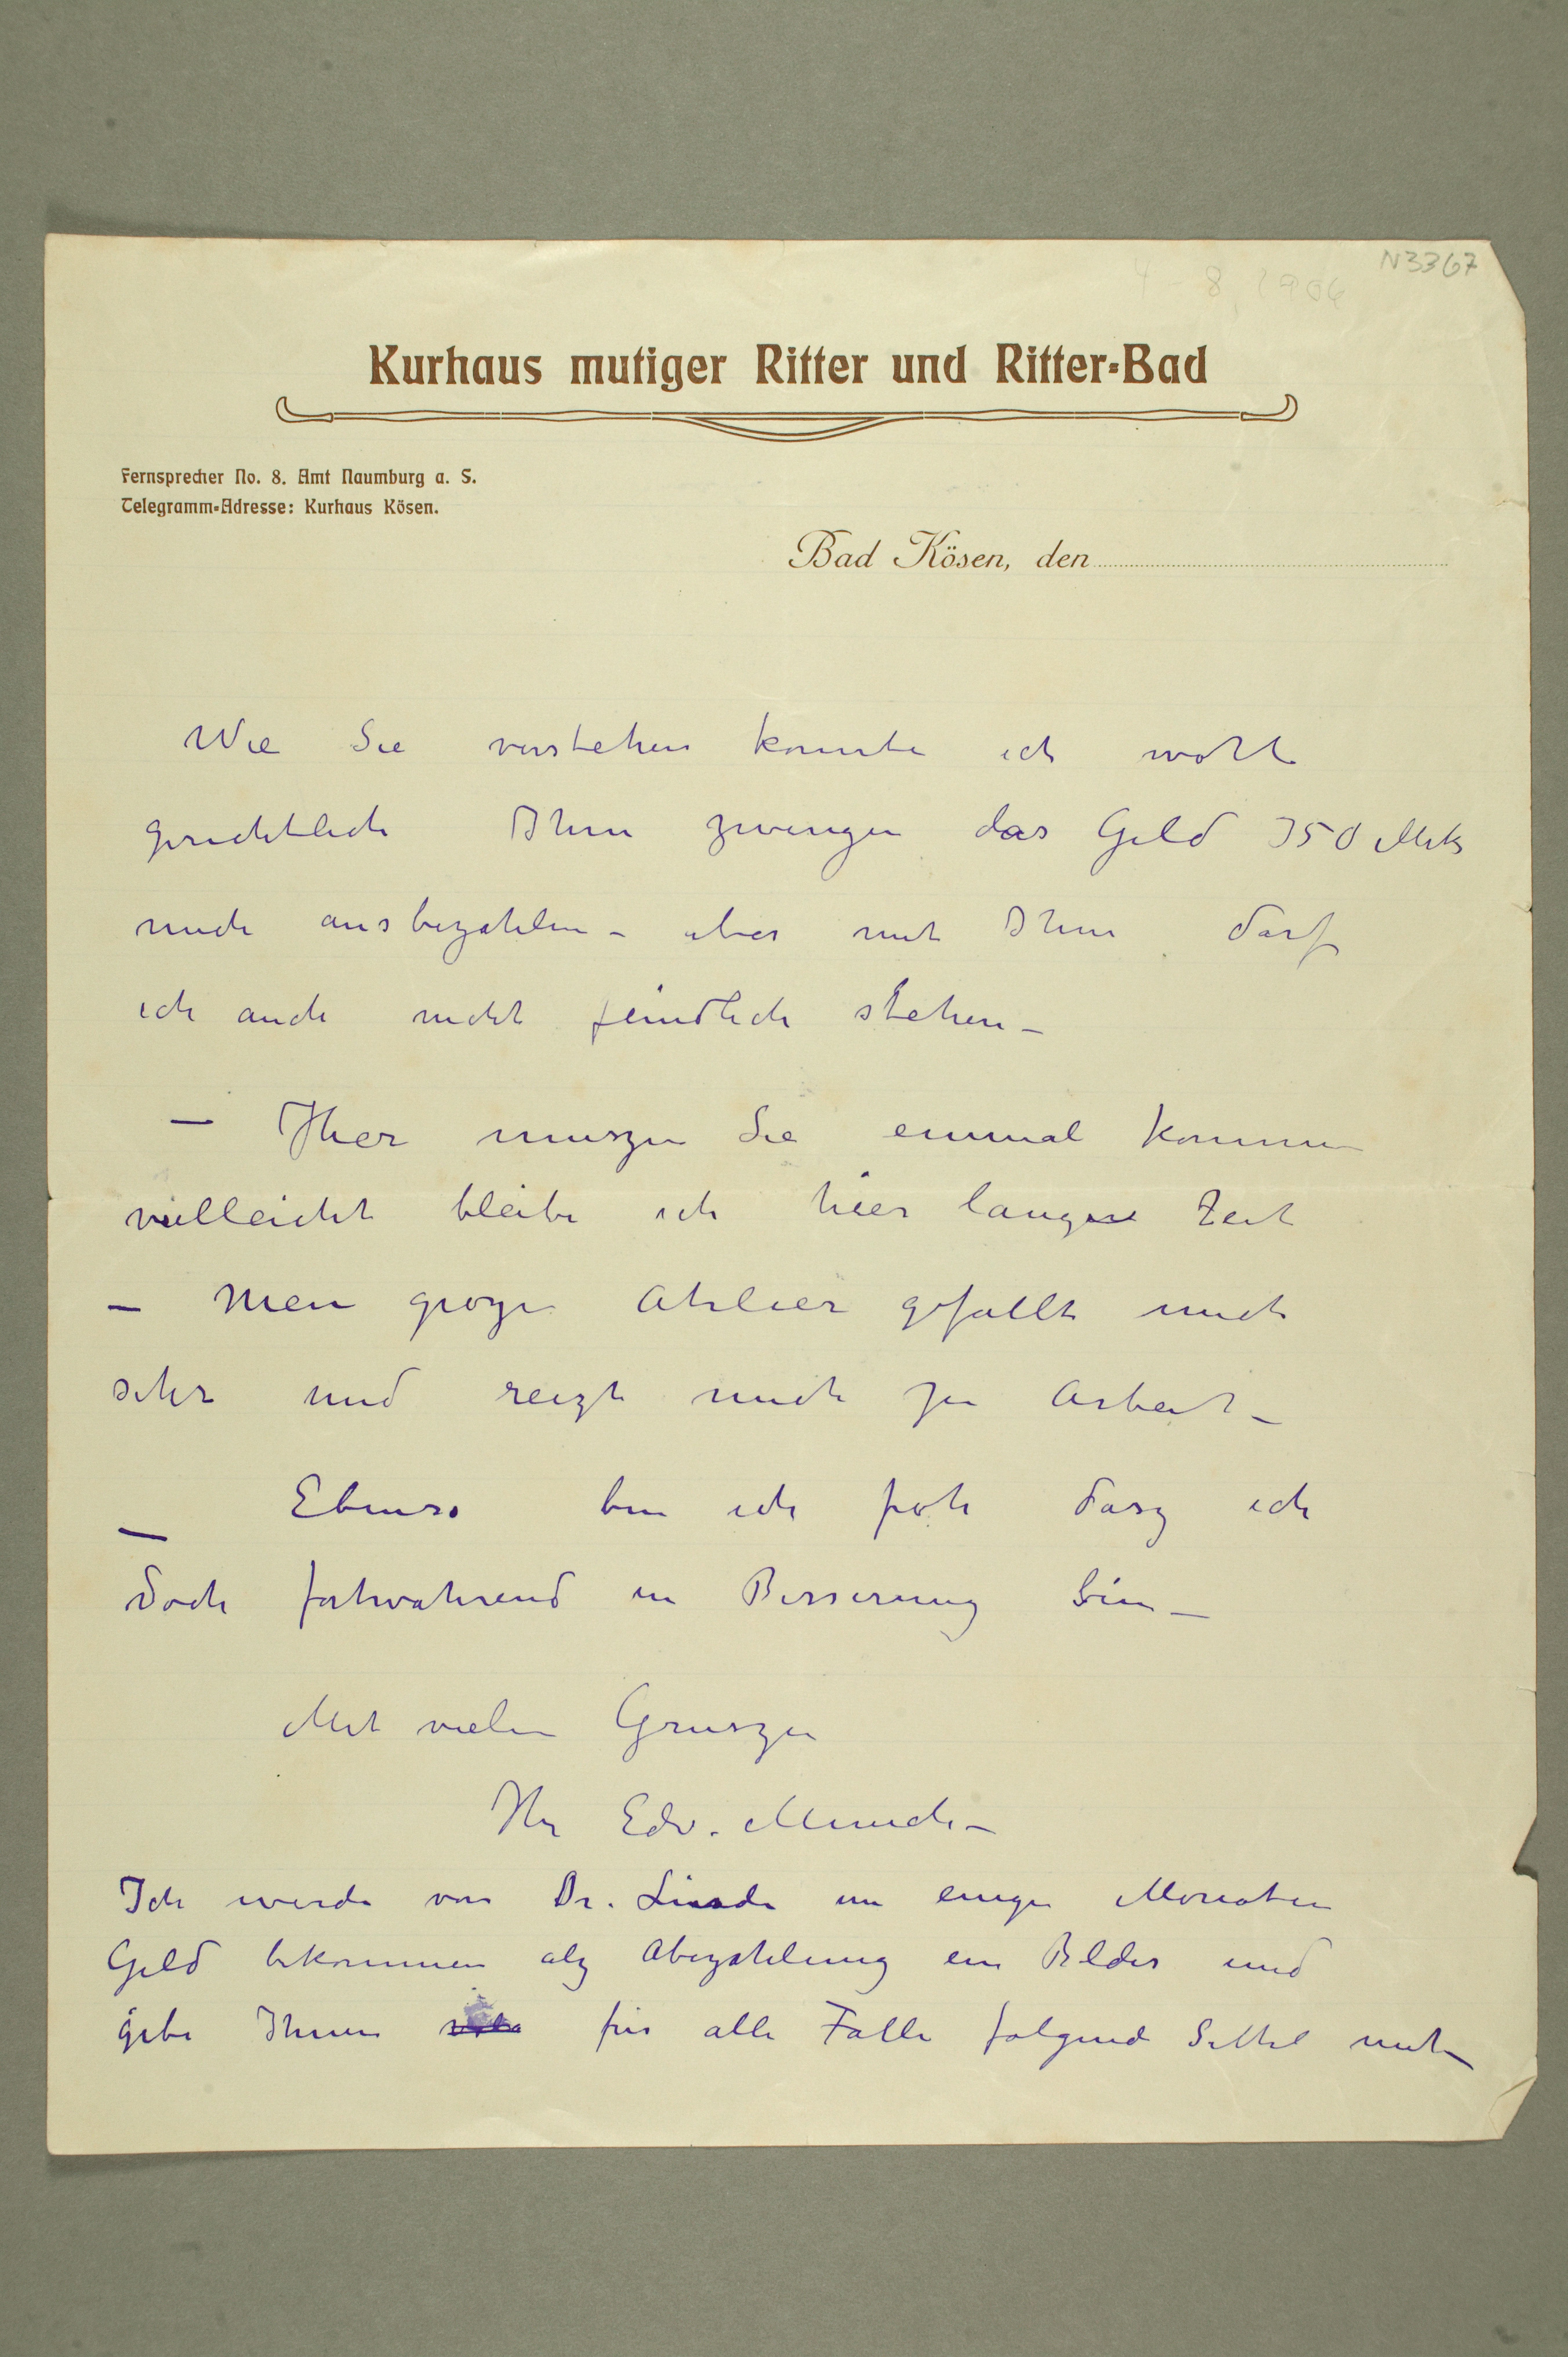 N3367
4 - 8, 1906
Kurhaus mutiger Ritter und Ritter-Bad
Fernsprecher No. 8. Amt Naumburg a. S.
Telegramm-Adresse: Kurhaus Kösen.
Bad Kösen, den
Wie Sie verstehen konnte ich wohl
gerichtlich Ihm zwingen das Geld 350 Mk
mich ausbezahlen – aber mit Ihm darf
ich auch nicht feindlich stehen –
– Hier muszen Sie einmal kommen
vielleicht bleibe ich hier lange Zeit
– Mein groze Atelier gefallt mich
sehr und reizt mich zu Arbeit –
– Ebenso bin ich froh dasz ich
doch fortwahrend in Besserung bin –
Mit vielen Gruszen
Ihr Edv. Munch –
Ich werde von Dr. Linde in einigen Monaten
Geld bekommen alz Abezahlung ein Bilder und
gebe Ihnen für alle Falle folgend Settel mit